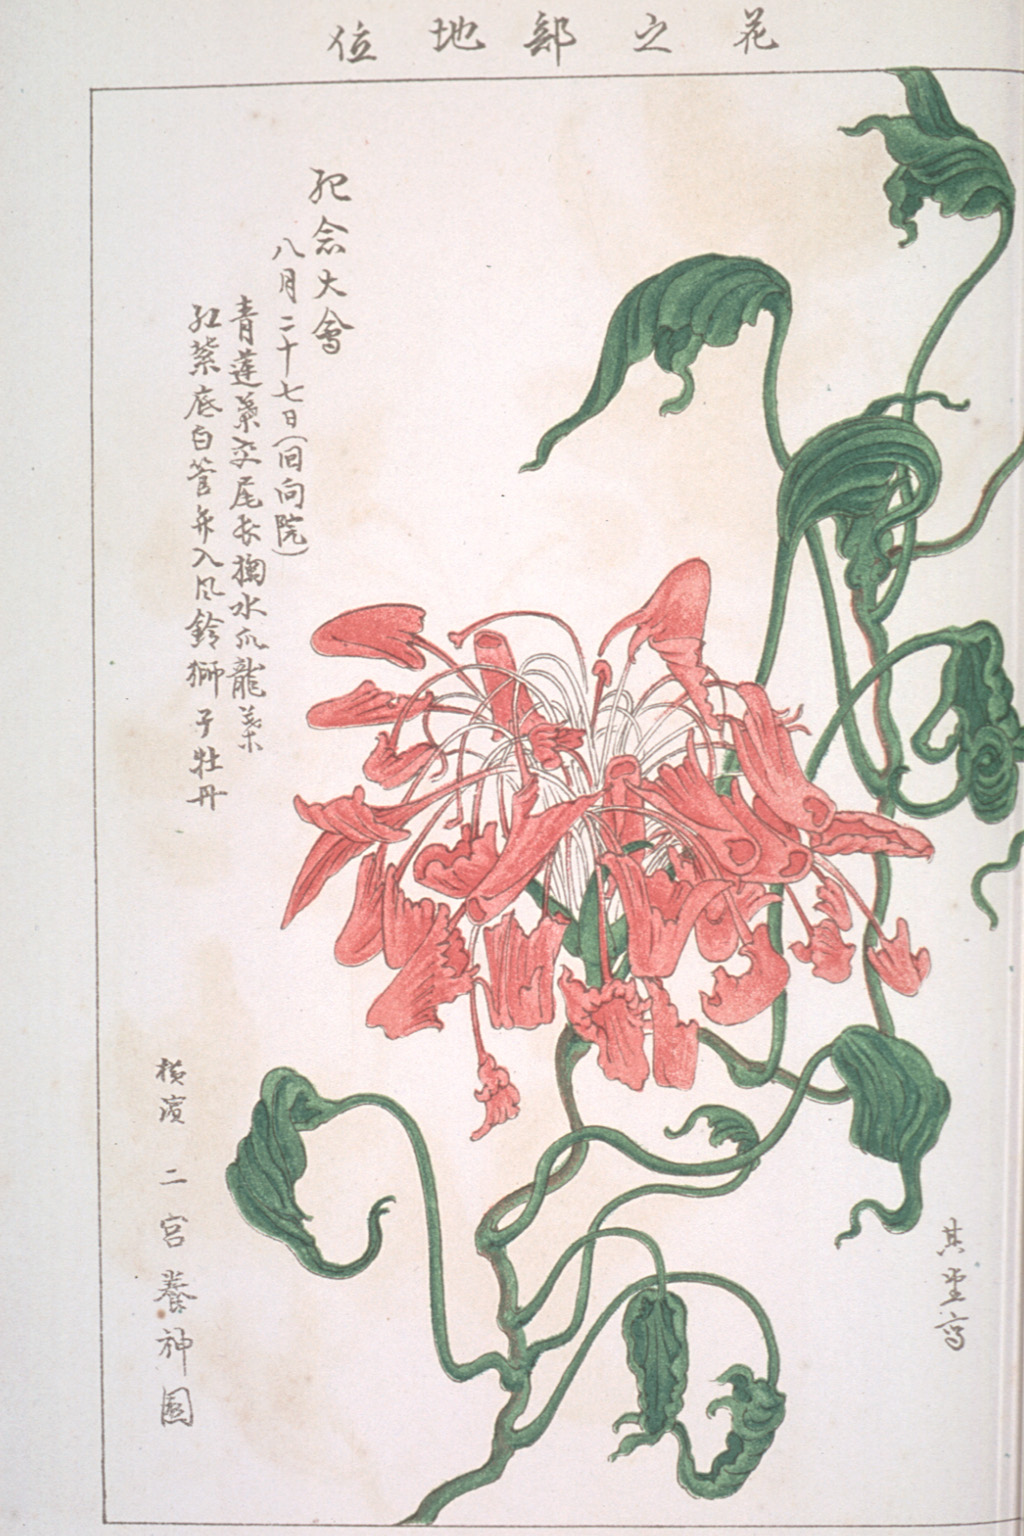 花之部地位
紀念大會
八月二十七日(回向院)
青蓮葉交尾長掬水爪龍葉
紅紫底白管弁入風鈴獅子牡丹
橫濱 二宮養神園
其堂寫